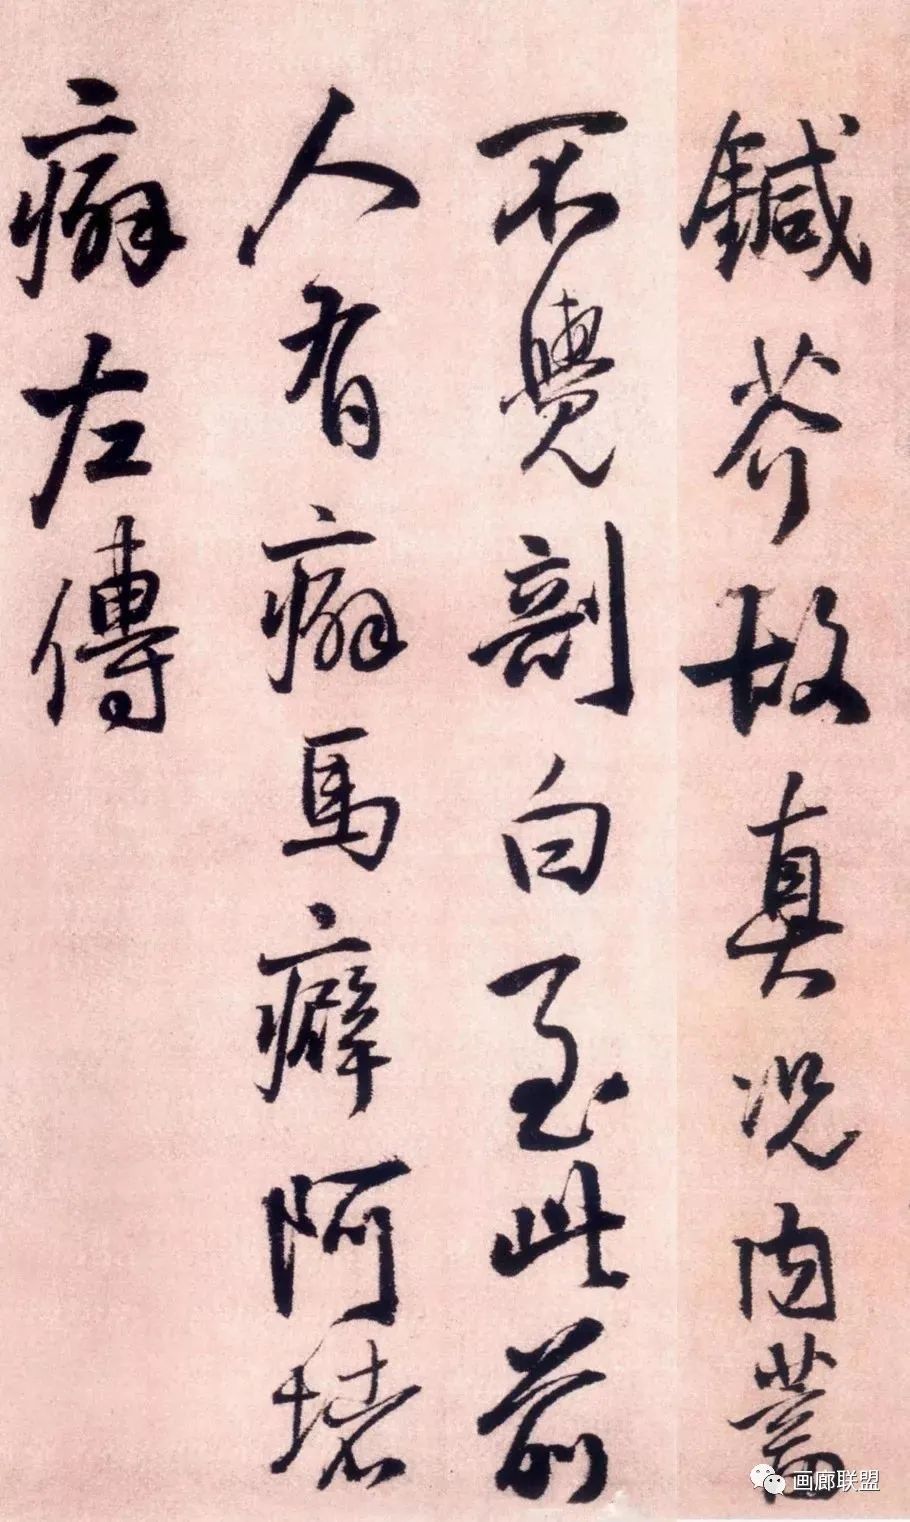 鍼芥故真况内蓄
不覺剖白至此前
人有癖馬癖阿堵
癖左傳
画廊联盟